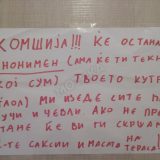 КОМШИЈА!!! ЌЕ ОСТАНА
НОНИМЕН (АМА ЌЕ ТИ ТЕКН
КОЈ СУМ) ТВОЕТО КУТР
(ЛОЛ) МИ ИЗЕДЕ СИТЕ П
УЧИ И ЧЕВЛИ. АКО НЕ ПР
ТАНЕ ЌЕ ВИ ГИ СКРШАМ
ТЕ САКСИИ И МАСТА НА ТЕРАСА!